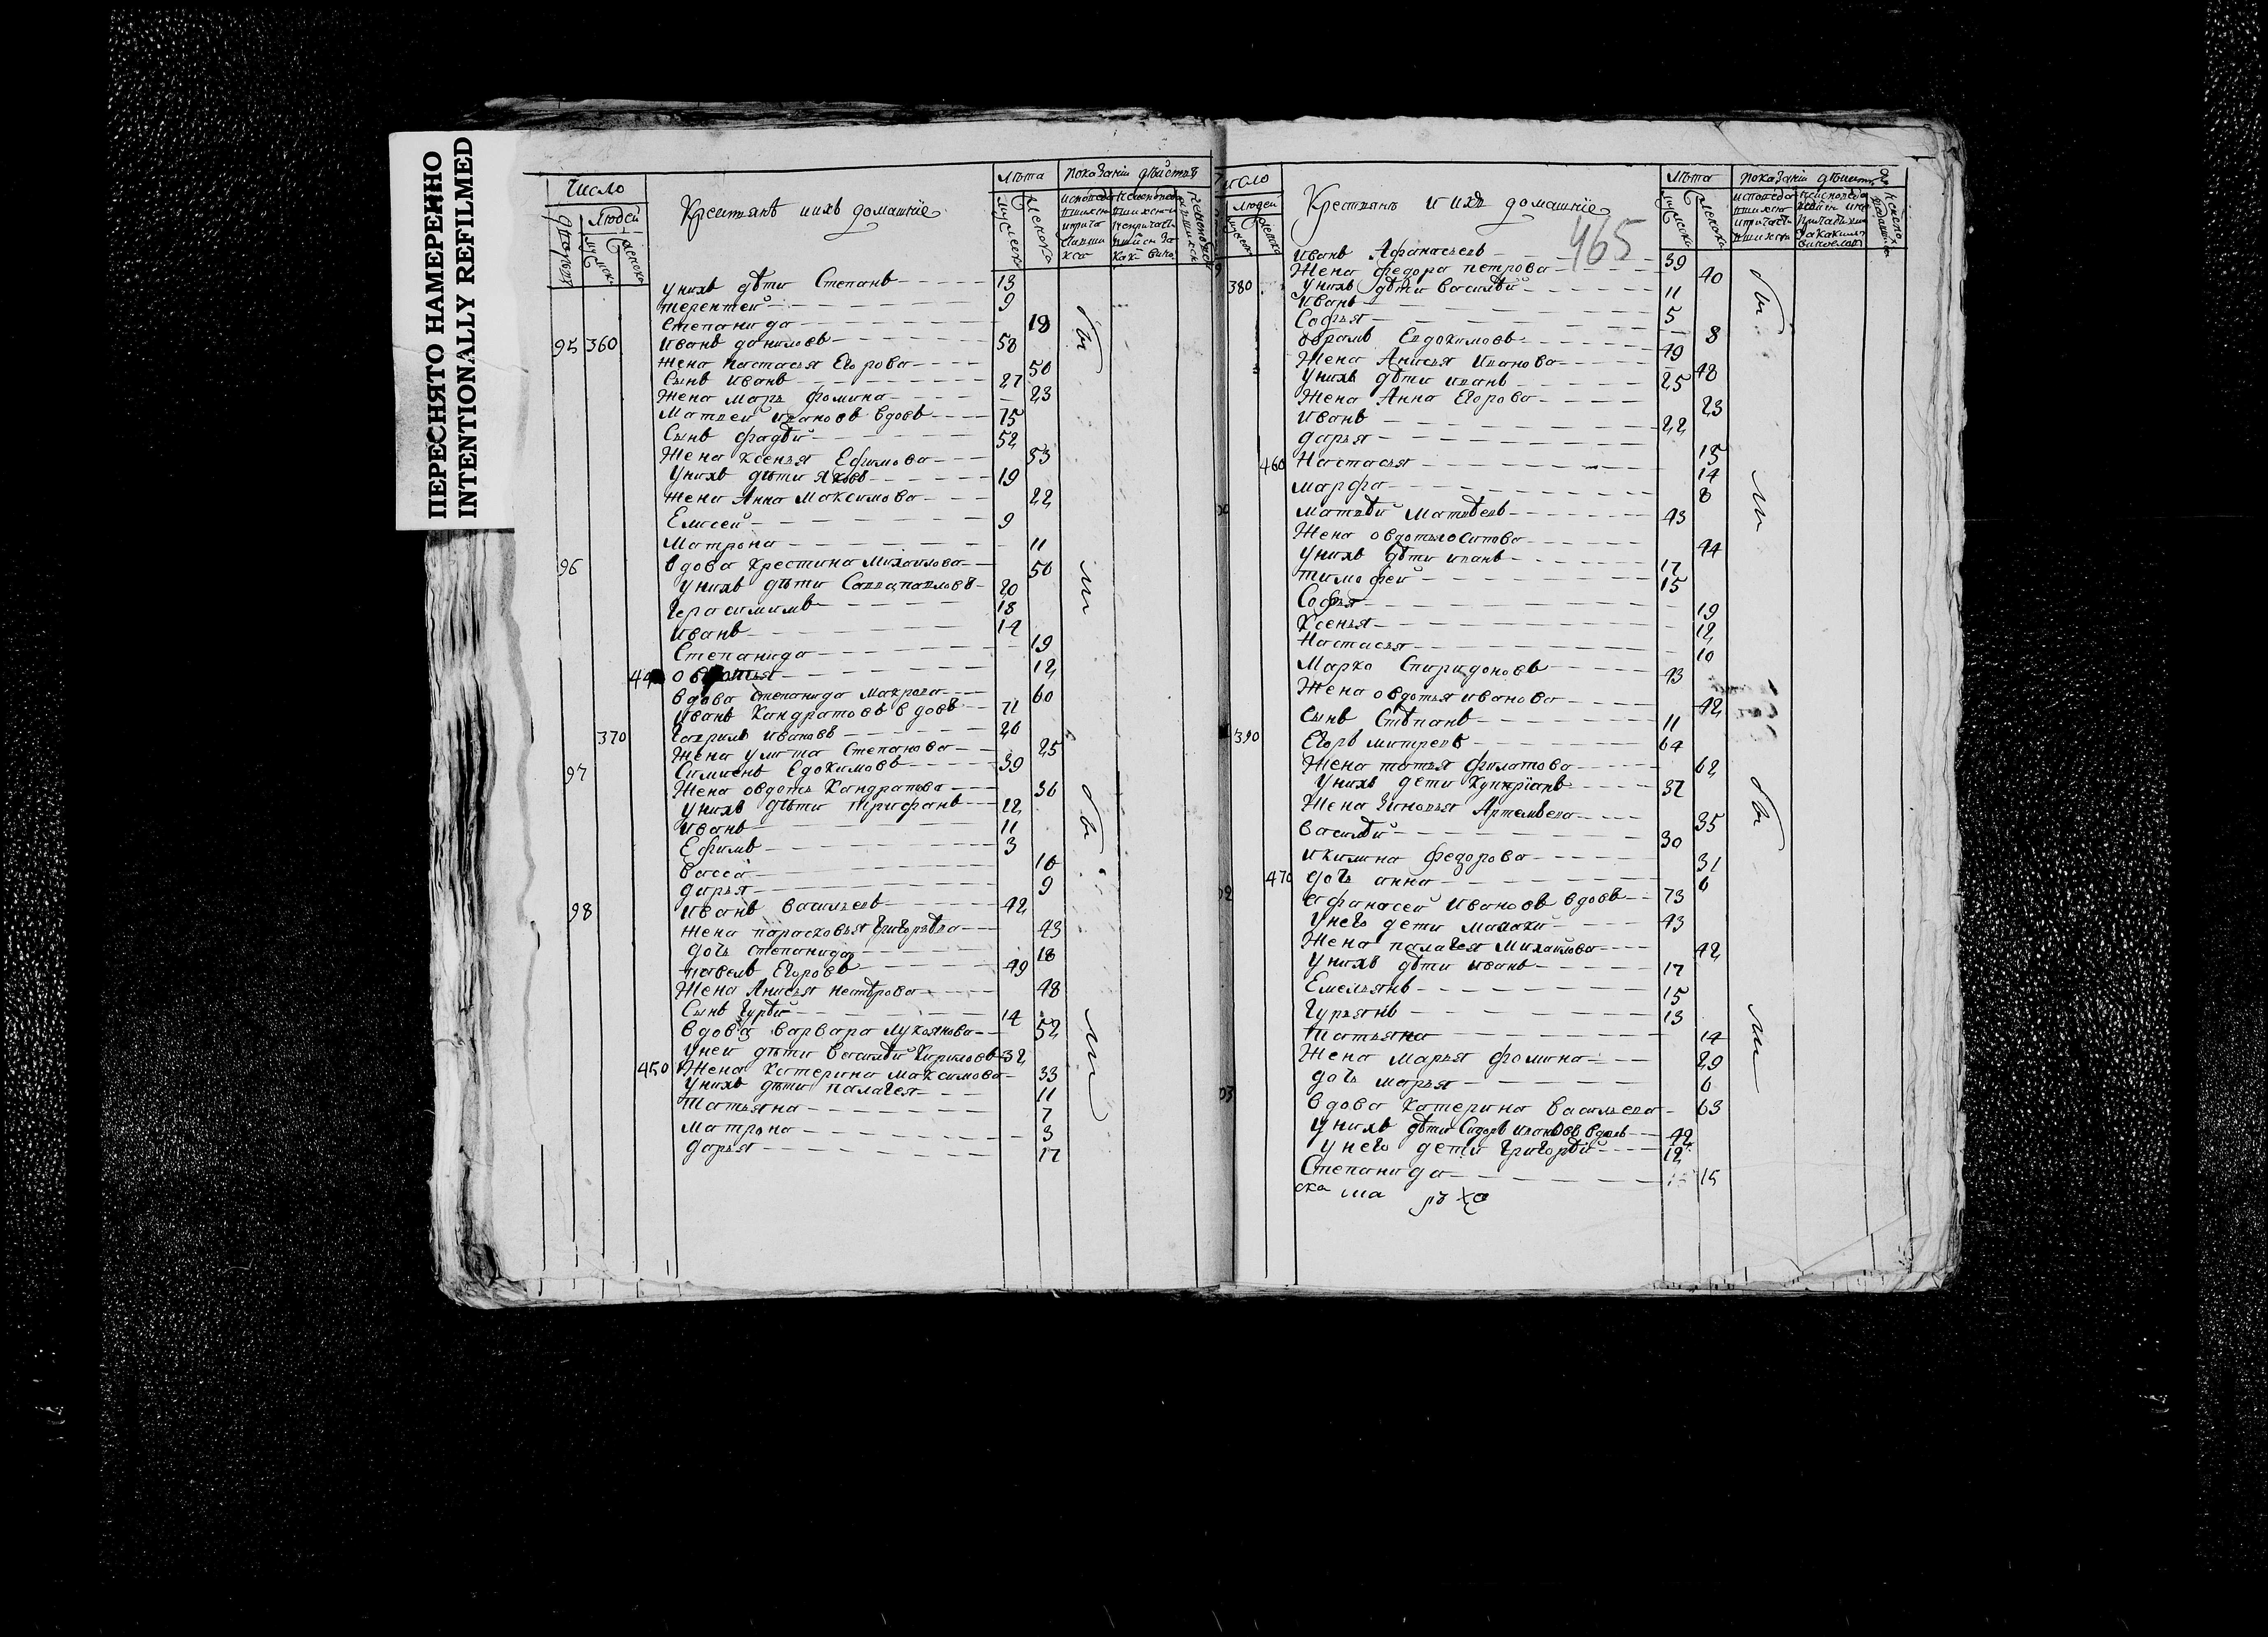 ПЕРЕСНЯТО НАМЕРЕННО
INTENTIONALLY REFILMED
Число
Людей
Крестьянъ иихъ домашніе
Лѣта
показаніи дѣйства
унихъ дѣти Степанъ 13
терентей 9
Степанида 18
95 360 иванъ даниловъ 58
жена настасья Егорова 50
Сынъ иванъ 27
жена марь фомина 23
Матвеи ивановъ вдовъ 75
Сынъ фадѣй 52
Жена ксенья Ефимова 53
Унихъ дѣти яковъ 19
жена Анна Максимова 22
Елисей 9
Матрона 11
96 вдова крестина Михаилова 50
унихъ дѣти Савва павловъ 20
герасимимъ 18
иванъ 14
Степанида 19
12
вдова степанида макрова 60
иванъ Кандратовъ вдовъ 71
370 Гаврилъ ивановъ 20
Жена улита Степанова 25
97 Симионъ Едокимовъ 39
жена овдоть Кандратова 36
унихъ дѣти трифанъ 12
иванъ 11
Ефимъ 3
васса 10
дарья 9
98 иванъ васильевъ 42
жена парасковья григорьева 43
дочь степанида 18
павелъ Егоровъ 49
Жена Анисья нестерова 48
Сынъ гурѣй 14
вдова варвара Лукоянова 52
унеи дѣти василѣй кириловъ 32
450 Жена катерина максимова 33
унихъ дѣти палагея 11
татьяна 7
матрона 3
дарья 17
число
людей
Крестьянъ и ихъ домашніе
465
Лѣта
показаніи
иванъ Афанасьевъ 39
Жена федора петрова 40
380 унихъ дѣти василѣй 11
иванъ 5
Софья 8
абрамъ Евдокимовъ 49
Жена Анисья иванова 48
унихъ дѣти иванъ 25
Жена Анна Егорова 23
иванъ 22
дарья 15
460 Настасья 14
марфа 8
матвѣй матвѣевъ 43
Жена овдотья осипова 44
унихъ дѣти иванъ 17
тимофей 15
Софья 19
Ксенья 12
Настасья 10
Марко Спиридоновъ 43
Жена овдотья иванова 42
сынъ Степанъ 11
390 Егоръ митревъ 64
Жена татья филатова 62
унихъ дети купріанъ 37
Жена Зиновья Артемьева 35
василѣй 30
икилина федорова 31
470 дочь анна 6
афанасеи ивановъ вдовъ 73
унего дети малахи 43
Жена палагея Михаилова 42
унихъ дѣти иванъ 17
Емельянъ 15
гурьянъ 13
татьяна 14
Жена марья фомина 29
дочь марья 6
вдова катерина васильева 63
унихъ дѣти Сидоръ ивановъ вдовъ 42
унего дети григорѣй 12
Степанида 15